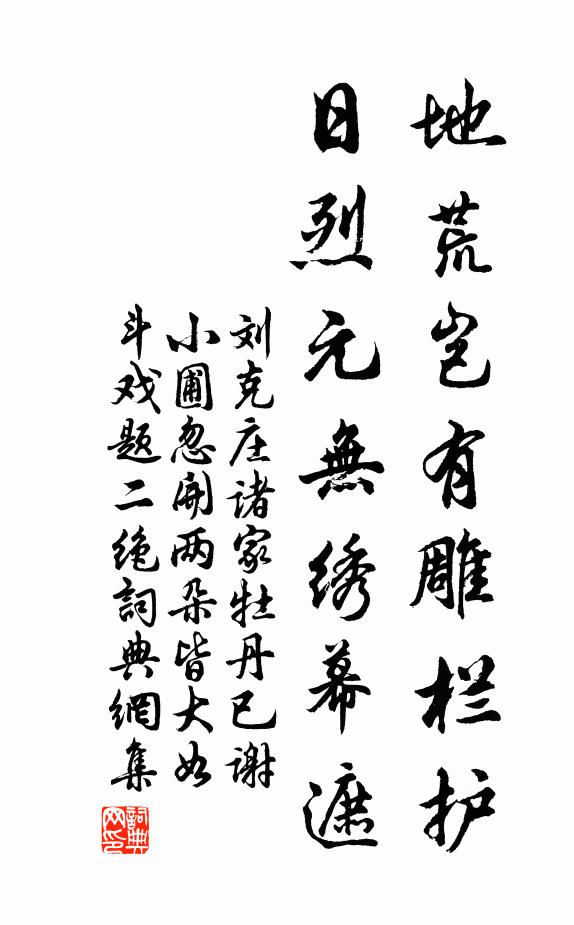 地荒岂有雕栏护
日烈元無绣幕遮
刘克庄诸家牡丹已谢
小圃忽開两朵皆大如
斗戏题二绝詞典網集
詞典
网印